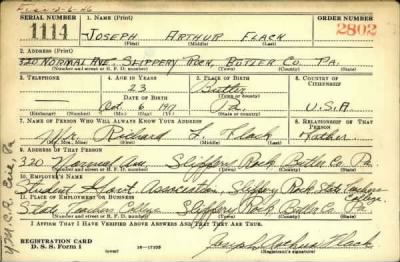 SERIAL NUMBER
1. NAME (Print)
ORDER NUMBER
1111
JOSEPH ARTHUR FLACK
2802
(First) (Middle) (Last)
2. ADDRESS (Print)
320 NORMAL AVE. SLIPPERY ROCK, BUTLER CO. PA.
(Number and street or R. F. D. number) (Town) (County) (State)
3. TELEPHONE
4. AGE IN YEARS
5. PLACE OF BIRTH
6. COUNTRY OF CITIZENSHIP
23
Butler
DATE OF BIRTH
(Town or county)
—
Oct. 6 1917
Pa.
U.S.A.
(Exchange) (Number)
(Mo.) (Day) (Yr.)
(State or country)
7. NAME OF PERSON WHO WILL ALWAYS KNOW YOUR ADDRESS
8. RELATIONSHIP OF THAT PERSON
Mr. Richard Flack
Father
(Mr., Mrs., Miss) (First) (Middle) (Last)
9. ADDRESS OF THAT PERSON
320 Normal Ave Slippery Rock Butler Co Pa
(Number and street or R. F. D. number) (Town) (County) (State)
10. EMPLOYER'S NAME
Student Association, Slippery Rock State Teachers College
11. PLACE OF EMPLOYMENT OR BUSINESS
State Teachers College Slippery Rock Butler Co Pa
(Number and street or R. F. D. number) (Town) (County) (State)
I AFFIRM THAT I HAVE VERIFIED ABOVE ANSWERS AND THAT THEY ARE TRUE.
REGISTRATION CARD
D. S. S. Form 1
(over)
16—17105
Joseph Arthur Flack